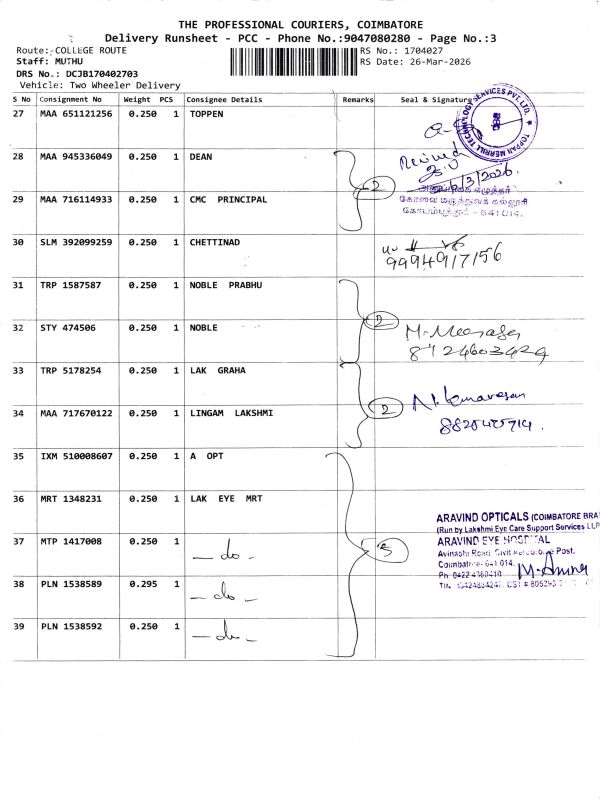 THE PROFESSIONAL COURIERS, COIMBATORE
Delivery Runsheet - PCC - Phone No.:9047080280 - Page No.:3
Route: COLLEGE ROUTE
RS No.: 1704027
Staff: MUTHU
RS Date: 26-Mar-2026
DRS No.: DCJB170402703
Vehicle: Two Wheeler Delivery
S No Consignment No Weight PCS Consignee Details Remarks Seal & Signature
27 MAA 651121256 0.250 1 TOPPEN
TOPPAN MERRILL TECHNOLOGY SERVICES PVT. LTD.
28 MAA 945336049 0.250 1 DEAN
2
/3/2026
29 MAA 716114933 0.250 1 CMC PRINCIPAL
கோவை மருத்துவக் கல்லூரி
கோயம்புத்தூர் - 641 014.
30 SLM 392099259 0.250 1 CHETTINAD
9994917156
31 TRP 1587587 0.250 1 NOBLE PRABHU
2
32 STY 474506 0.250 1 NOBLE
33 TRP 5178254 0.250 1 LAK GRAHA
34 MAA 717670122 0.250 1 LINGAM LAKSHMI
2
35 IXM 510008607 0.250 1 A OPT
36 MRT 1348231 0.250 1 LAK EYE MRT
ARAVIND OPTICALS (COIMBATORE BRA
(Run by Lakshmi Eye Care Support Services LLP
37 MTP 1417008 0.250 1 - do -
5
ARAVIND EYE HOSPITAL
Avinashi Road, Civil Aerodrome Post,
Coimbatore- 641 014.
38 PLN 1538589 0.295 1 - do -
Ph: 0422-4360410
39 PLN 1538592 0.250 1 - do -